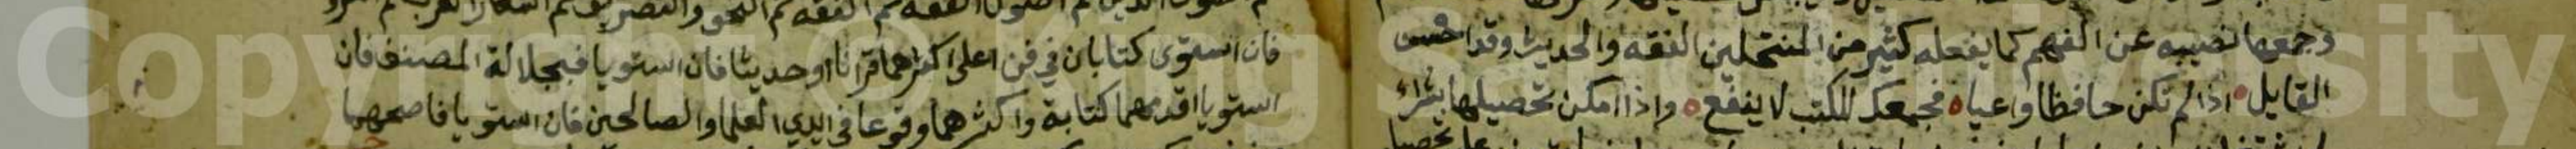 وجمعها نصيبه عن الفهم كما يفعله كثير من المنتحلين الفقه والحديث وقد احسن
القايل اذا لم تكن حافظا واعيا فجمعك للكتب لا ينفع واذا امكن تحصيلها بشراء
ثم الفقه ثم النحو والتصريف ثم اشعار العرب ثم
فان استوى كتابان في فن اعلى اكثرهما قرانا او حديثا فان استويا فبجلالة المصنف فان
استويا اقدمهما كتابة واكثرهما وقوعا في ايدي العلما والصالحين فان استويا فاصحهما
Copyright © King Saud University